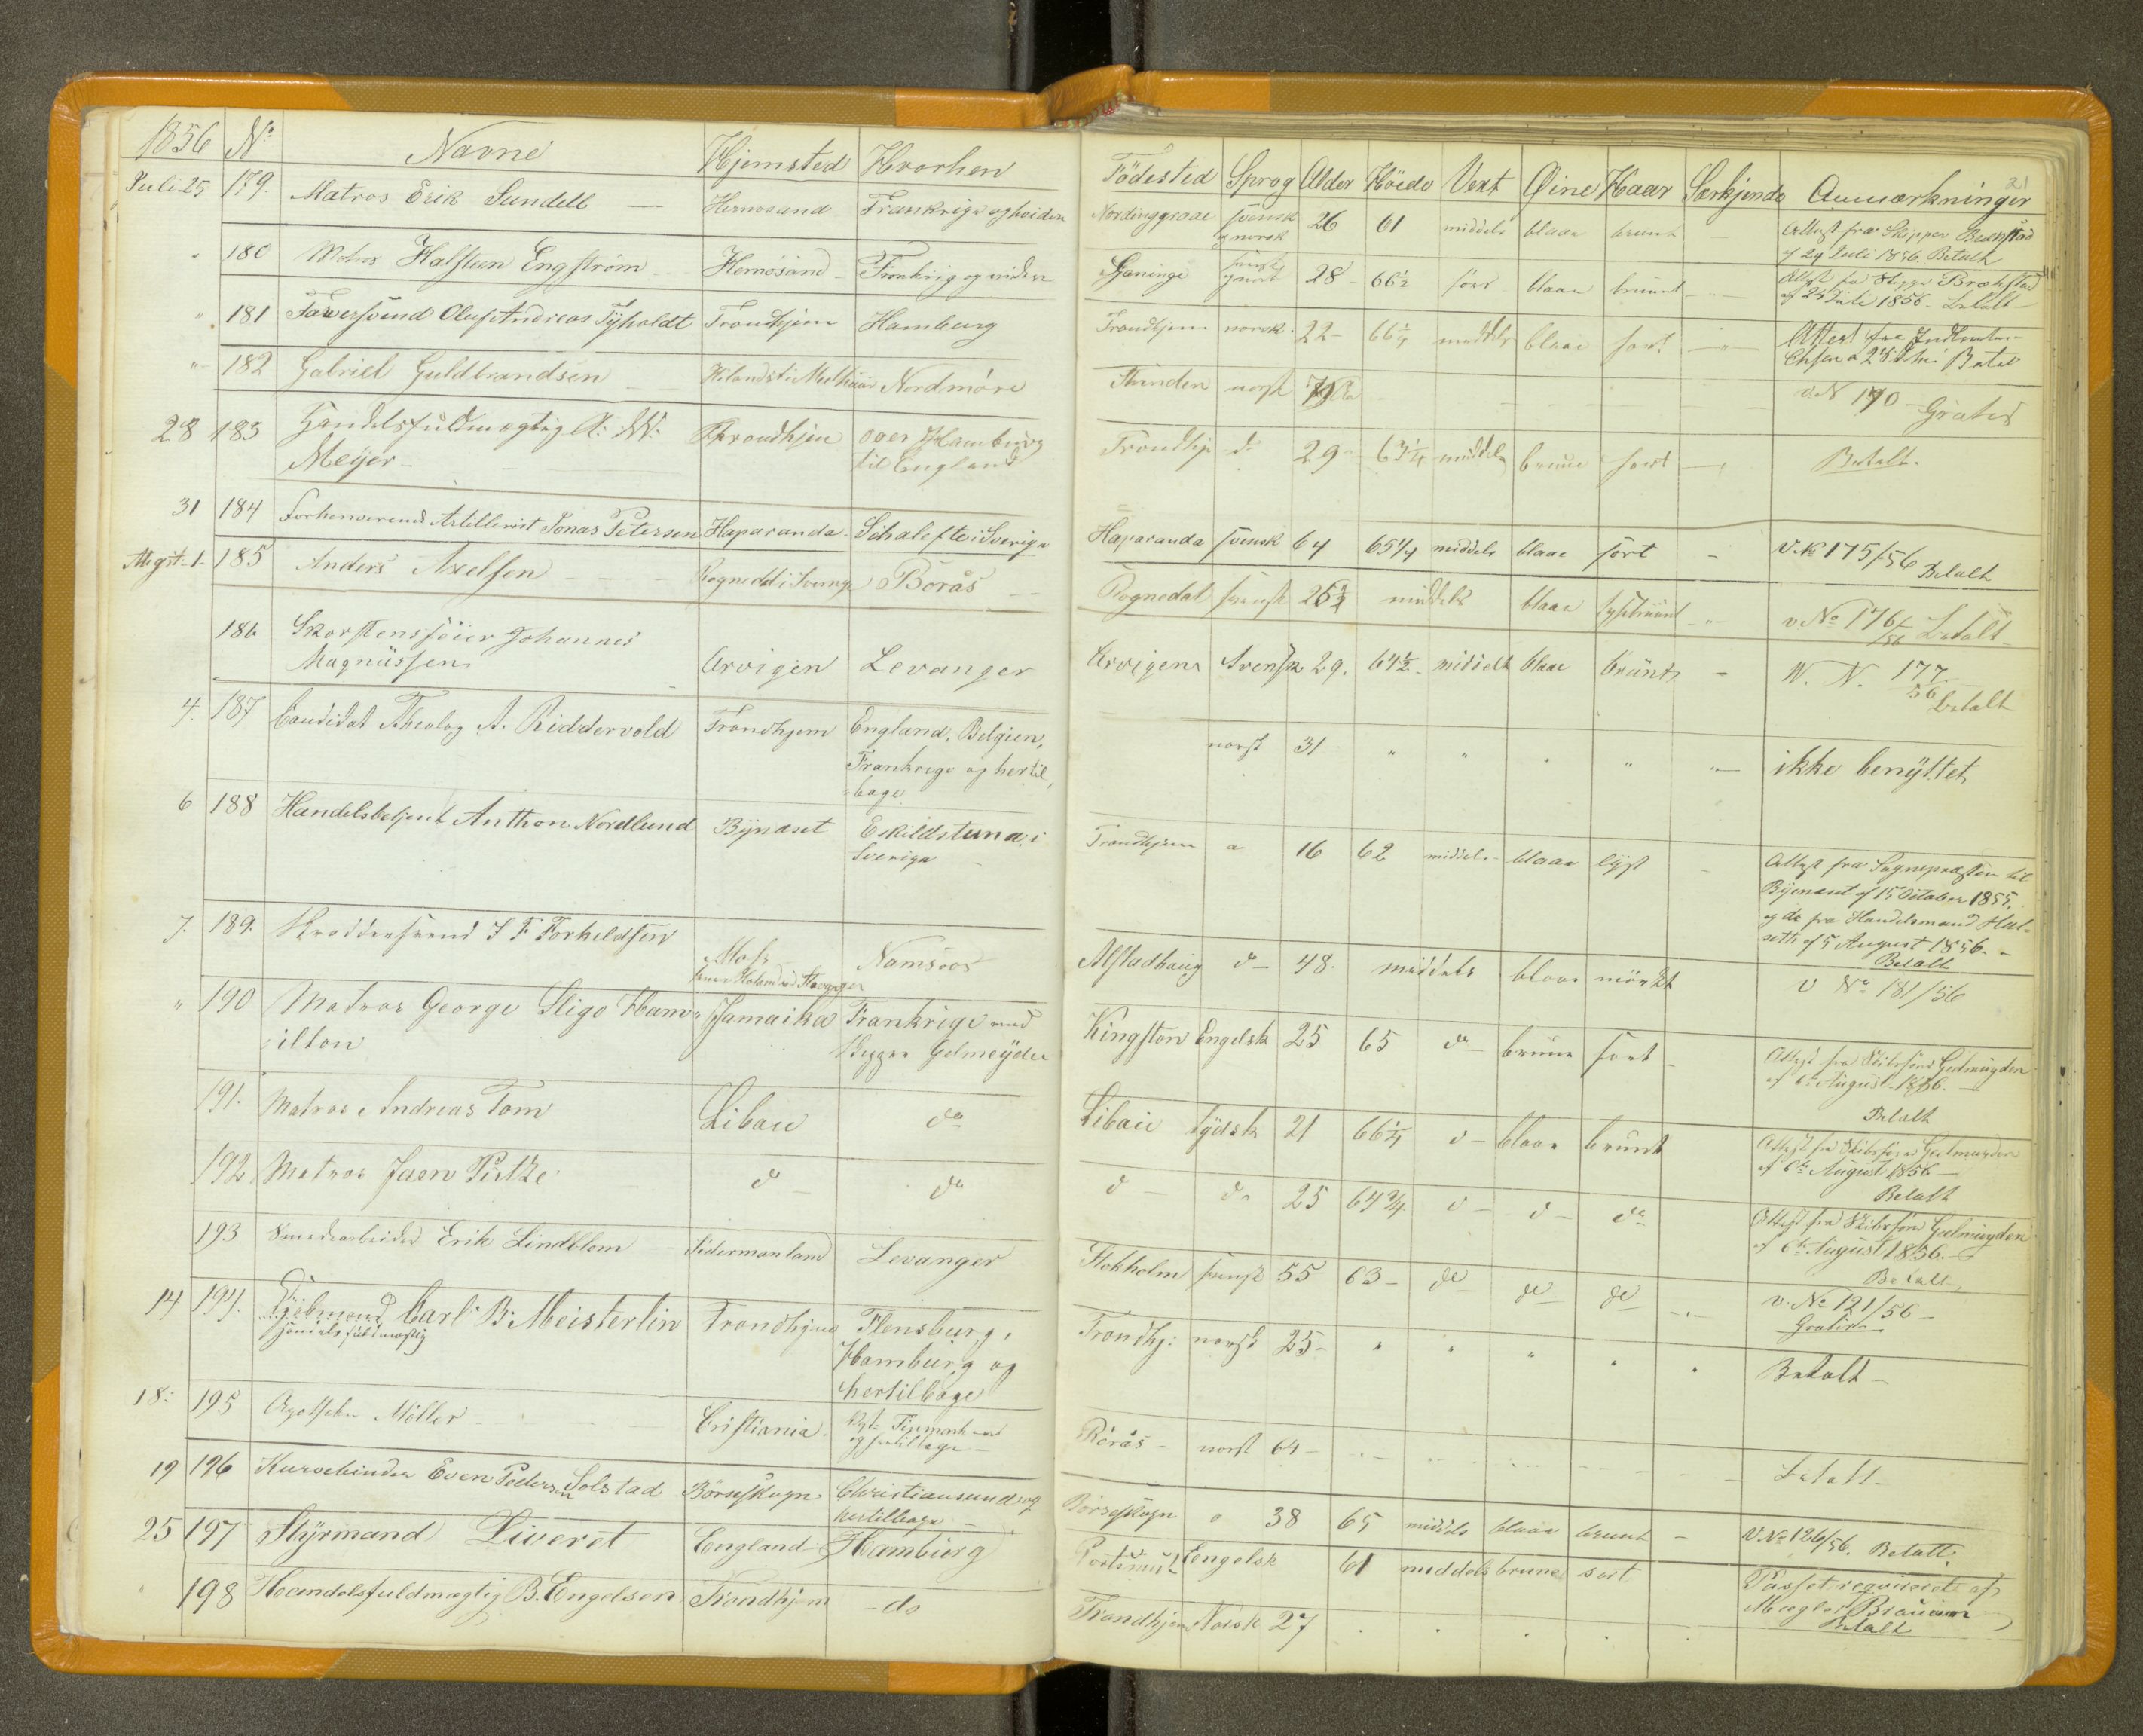 1856 No Navne Hjemsted Hvorhen Födested Sprog Alder Höide Vext Öine Haar Særkjende Anmærkninger 21
Juli 25 179. Matros Erik Sundell — Hernosand Frankrige og videre Nordinggraae svensk 26 61 middels blaae brunt — Attest fra Skipper
og norsk af 24 Juli 1856. Betalt
" 180 Matros Halfteen Engström Hernösand Frankrig og videre svensk og norsk 28 66½ före blaae brunt — Attest fra
af 25 Juli 1856. Betalt
" 181 Farversvend Oluf Andreas Tyholdt Trondhjem Hamburg Trondhjem norsk. 22 66¼ middels blaae sort — " — Attest fra
Betalt
" 182 Gabriel Guldbrandsen Nordmöre Strinden norsk v. N 170 — Gratis
28 183 Handelsfuldmægtig A: W: Throndhjem over Hamburg Trondhj do 29 63¼ middels brune sort — Betalt.
Meyer til England
31 184 Forhenværende Artillerist Jonas Petersen Haparanda. Schalefte i Sverige Haparanda svensk 64 65¼ middels blaae sort — v. No 175/56 Betalt
Augst. 1. 185 Anders Axelsen Rognedd i Sverrige Borås Rognedal svensk middels blaae lysebrunt — v No 176/56 Betalt
186 Skorstensfeier Johannes
Magnussen Arvigen Levanger Arvigen Svensk 29. 64½ middels blaae brunt — W. N. 177/56
Betalt
4. 187 Candidat Theolog A. Riddervold Trondhjem England, Belgien, norsk 31 " " " " " ikke benyttet
Frankrige og hertil
bage
6 188 Handelsbetjent Anthon Nordlund Bynæset Eskildstuna i Trondhjem a 16 62 middels blaae lyst — Attest fra Sognepræsten til
Sverige Bynæset af 15 October 1855.
og do fra Handelsmand Hul-
seth af 5 August 1856. —
Betalt
7. 189. Skræddersvend J F Forheldsen Moss Namsoos Alstadhaug d— 48. middels blaae mörkt v No 181/56
" 190 Matros George Sligo Ham- Jamaika Frankrige med Kingston Engelsk 25 65 do brune sort — Attest fra Skibsförer Gelmuyden
ilton Skipper Gelmeyden af 6 August 1856. —
Betalt
191. Matros Andreas Tom Libau do Libau tydsk 21 66¼ d— blaae brunt Attest fra Skibsförer Gelmuyden
af 6te August 1856 —
Betalt
192 Matros Jaen Pultze d— do d— do 25 64¾ d— d— do Attest fra Skibsförer Gelmuyden
af 6te August 1856. —
Betalt
193 Smedearbeider Erik Lindblom Södermanland Levanger Stokholm svensk 55 63 — do do do — v. No 121/56 —
Gratis
14 194. Carl B: Meisterlin Trondhjem Flensburg, Trondhj: norsk 25 — " " " " " Betalt —
Handelsfuldmægtig Hamburg og
hertilbage
18. 195 Apotheker Möller Cristiania. Finmarken Rörås — norsk 64 — Betalt —
og hertilbage —
19 196 Kurvebinder Even Pedersen Solstad Börseskogn Christiansund og Börseskogn o 38 65 middels blaae brunt — v. No 126/56. Betalt.
hertilbage —
25 197 Styrmand Liveret England Hamburg Portsmut Engelsk 61 middels brune sort Passet reqvireret af
Mægler
Betalt
198 Handelsfuldmægtig B. Engelsen Trondhjem — do Trondhjem Norsk 27